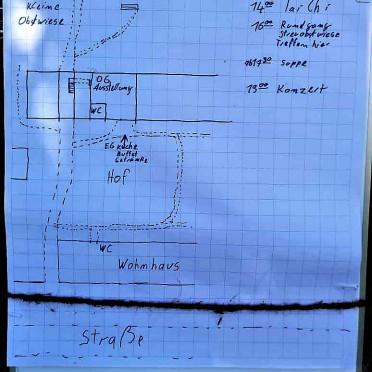 Kleine
Obstwiese
14⁰⁰ Tai Chi
16⁰⁰ Rundgang
Streuobstwiese
Treffen hier
Suppe
19⁰⁰ Konzert
OG
Ausstellung
WC
EG Küche
Buffet
Getränke
Hof
WC
Wohnhaus
Straße